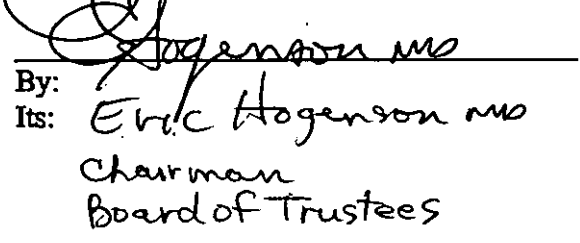 Hogenson MD
By:
Its: Eric Hogenson MD
Chairman
Board of Trustees